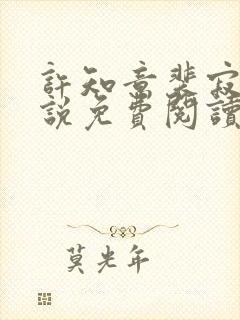 許知意裴寂
說免費閱讀
莫光年